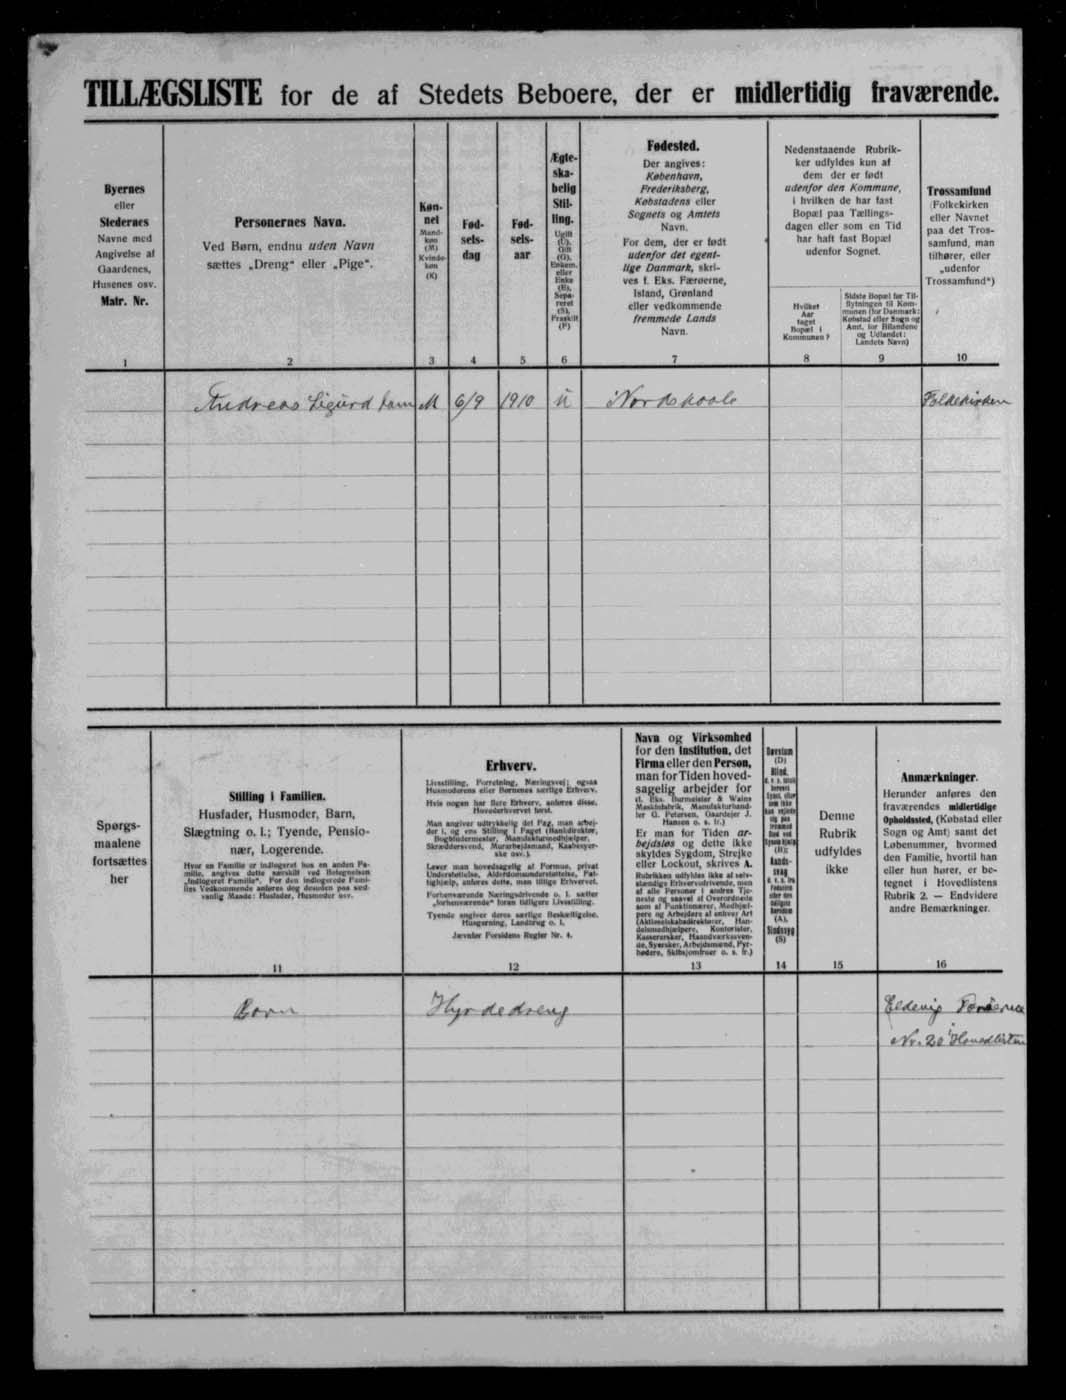 TILLÆGSLISTE for de af Stedets Beboere, der er midlertidig fraværende.
Byernes
eller
Stedernes
Navne med
Angivelse af
Gaardenes,
Husenes osv.
Matr. Nr.
1
Personernes Navn.
Ved Børn, endnu uden Navn
sættes „Dreng“ eller „Pige“.
2
Køn-
net
Mand-
køn
(M)
Kvinde-
køn
(K)
3
Fød-
sels-
dag
4
Fød-
sels-
aar
5
Ægte-
ska-
belig
Stil-
ling.
Ugift
(U),
Gift
(G),
Enkem.
eller
Enke
(E),
Sepa-
reret
(S),
Fraskilt
(F)
6
Fødested.
Der angives:
København,
Frederiksberg,
Købstadens eller
Sognets og Amtets
Navn.
For dem, der er født
udenfor det egent-
lige Danmark, skri-
ves f. Eks. Færøerne,
Island, Grønland
eller vedkommende
fremmede Lands
Navn.
7
Nedenstaaende Rubrik-
ker udfyldes kun af
dem der er født
udenfor den Kommune,
i hvilken de har fast
Bopæl paa Tællings-
dagen eller som en Tid
har haft fast Bopæl
udenfor Sognet.
Hvilket
Aar
taget
Bopæl i
Kommunen?
8
Sidste Bopæl før Til-
flytningen til Kom-
munen (for Danmark:
Købstad eller Sogn og
Amt, for Bilandene
og Udlandet:
Landets Navn)
9
Trossamfund
(Folkekirken
eller Navnet
paa det Tros-
samfund, man
tilhører, eller
„udenfor
Trossamfund“)
10
Andreas Sigurd M 6/9 1910 U Folkekirken
Spørgs-
maalene
fortsættes
her
Stilling i Familien.
Husfader, Husmoder, Barn,
Slægtning o. l.; Tyende, Pensio-
nær, Logerende.
Hvor en Familie er indlogeret hos en anden Fa-
milie, angives dette særskilt ved Betegnelsen
„Indlogeret Familie“. For den indlogerede Fami-
lies Vedkommende anføres dog desuden paa sed-
vanlig Maade: Husfader, Husmoder osv.
11
Erhverv.
Livsstilling, Forretning, Næringsvej; ogsaa
Husmoderens eller Børnenes særlige Erhverv.
Hvis nogen har flere Erhverv, anføres disse,
Hovederhvervet først.
Man angiver udtrykkelig det Fag, man arbej-
der i, og ens Stilling i Faget (Bankdirektør,
Bogbindermester, Manufakturmedhjælper,
Skræddersvend, Murarbejdsmand, Kaabesyer-
ske osv.).
Lever man hovedsagelig af Formue, privat
Understøttelse, Alderdomsunderstøttelse, Fat-
tighjælp, anføres dette, man tillige Erhvervet.
Forhenværende Næringsdrivende o. l. sætter
„forhenværende“ foran tidligere Livsstilling.
Tyende angiver deres særlige Beskæftigelse,
Husgerning, Landbrug o. l.
Jævnfør Forsidens Regler Nr. 4.
12
Navn og Virksomhed
for den Institution, det
Firma eller den Person,
man for Tiden hoved-
sagelig arbejder for
(f. Eks. Burmeister & Wains
Maskinfabrik, Manufakturhand-
ler G. Petersen, Gaardejer J.
Hansen o. s. fr.)
Er man for Tiden ar-
bejdsløs og dette ikke
skyldes Sygdom, Strejke
eller Lockout, skrives A.
Rubrikken udfyldes ikke af selv-
stændige Erhvervsdrivende, men
af alle Personer i andres Tje-
neste og saavel af Overordnede
som af Funktionærer, Medhjæl-
pere og Arbejdere af enhver Art
(Aktieselskabsdirektører, Han-
delsmedhjælpere, Kontorister,
Kassererske, Haandværkssven-
de, Syersker, Arbejdsmænd, Fyr-
bødere, Skibsjomfruer o. s. fr.)
13
Døvstum
(D)
Blind,
(B);
Aands-
svag
(A),
Sindssyg
(S)
14
Denne
Rubrik
udfyldes
ikke
15
Anmærkninger.
Herunder anføres den
fraværendes midlertidige
Opholdssted, (Købstad eller
Sogn og Amt) samt det
Løbenummer, hvormed
den Familie, hvortil han
eller hun hører, er be-
tegnet i Hovedlistens
Rubrik 2. — Endvidere
andre Bemærkninger.
16
Barn Hyrdedreng
Nr. 20 Hovedlisten